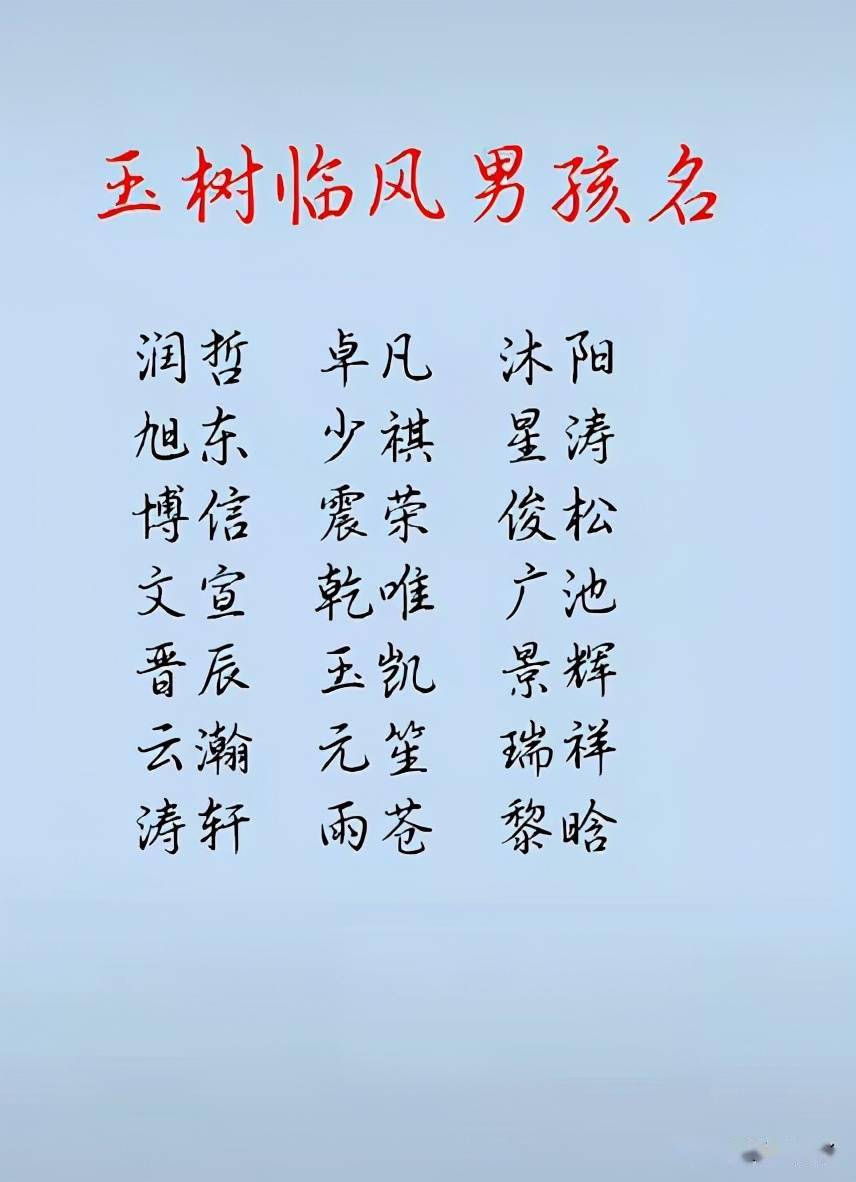 玉树临风男孩名
润哲 卓凡 沐阳
旭东 少祺 星涛
博信 震荣 俊松
文宣 乾唯 广池
晋辰 玉凯 景辉
云瀚 元笙 瑞祥
涛轩 雨苍 黎晗